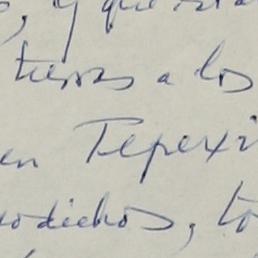 , y que
tierras a los
en Tepexi
sodichos, to